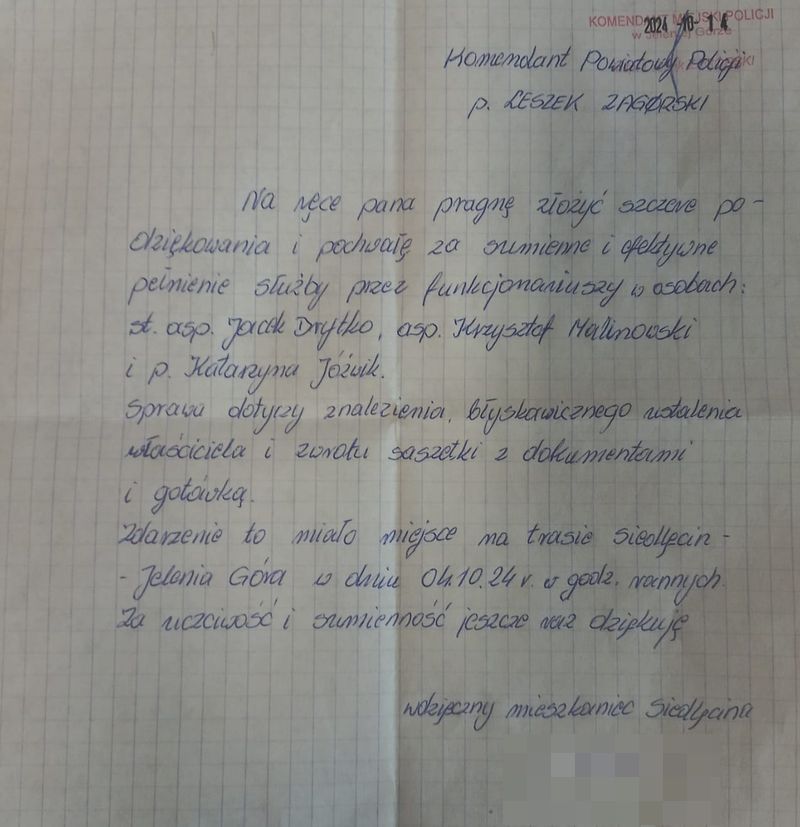 KOMENDANT MIEJSKI POLICJI
w Jeleniej Górze
2024 -10- 14
Komendant Powiatowy Policji
p. LESZEK ZAGÓRSKI
Na ręce pana pragnę złożyć szczere po-
dziękowania i pochwałę za sumienne i efektywne
pełnienie służby przez funkcjonariuszy w osobach:
st. asp. Jacek Drytko, asp. Krzysztof Malinowski
i p. Katarzyna Jóźwik.
Sprawa dotyczy znalezienia, błyskawicznego ustalenia
właściciela i zwrotu saszetki z dokumentami
i gotówką.
Zdarzenie to miało miejsce na trasie Siedlęcin -
- Jelenia Góra w dniu 04.10.24 r. w godz. rannych.
Za uczciwość i sumienność jeszcze raz dziękuję
wdzięczny mieszkaniec Siedlęcina